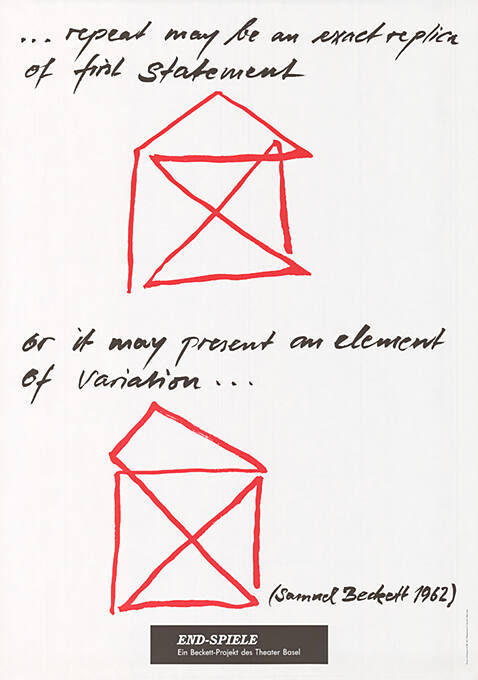 ... repeat may be an exact replica
of first statement
or it may present an element
of variation ...
(Samuel Beckett 1962)
END-SPIELE
Ein Beckett-Projekt des Theater Basel